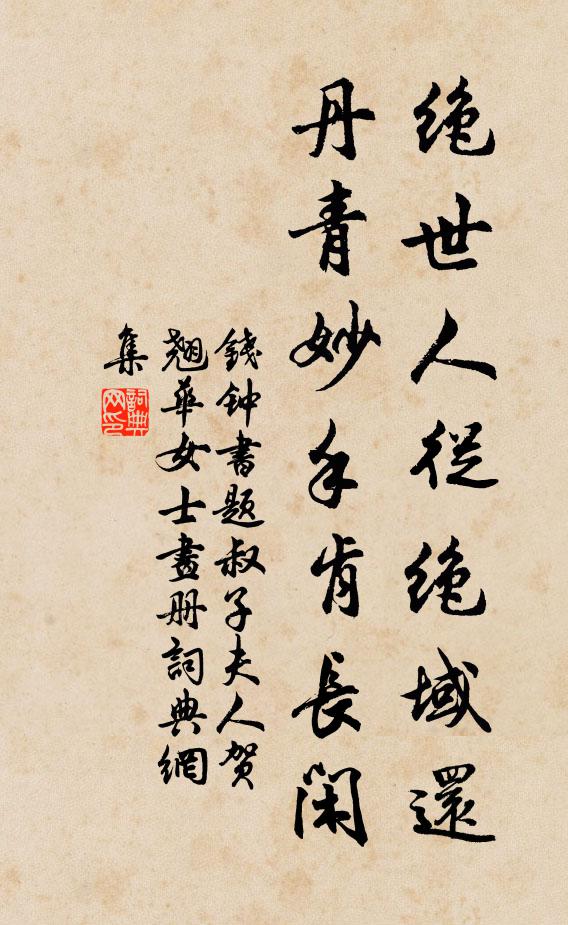 絶世人從絶域還
丹青妙手肯長閑
錢钟書題叔子夫人贺
翘華女士畫册詞典網
集
詞典
网印